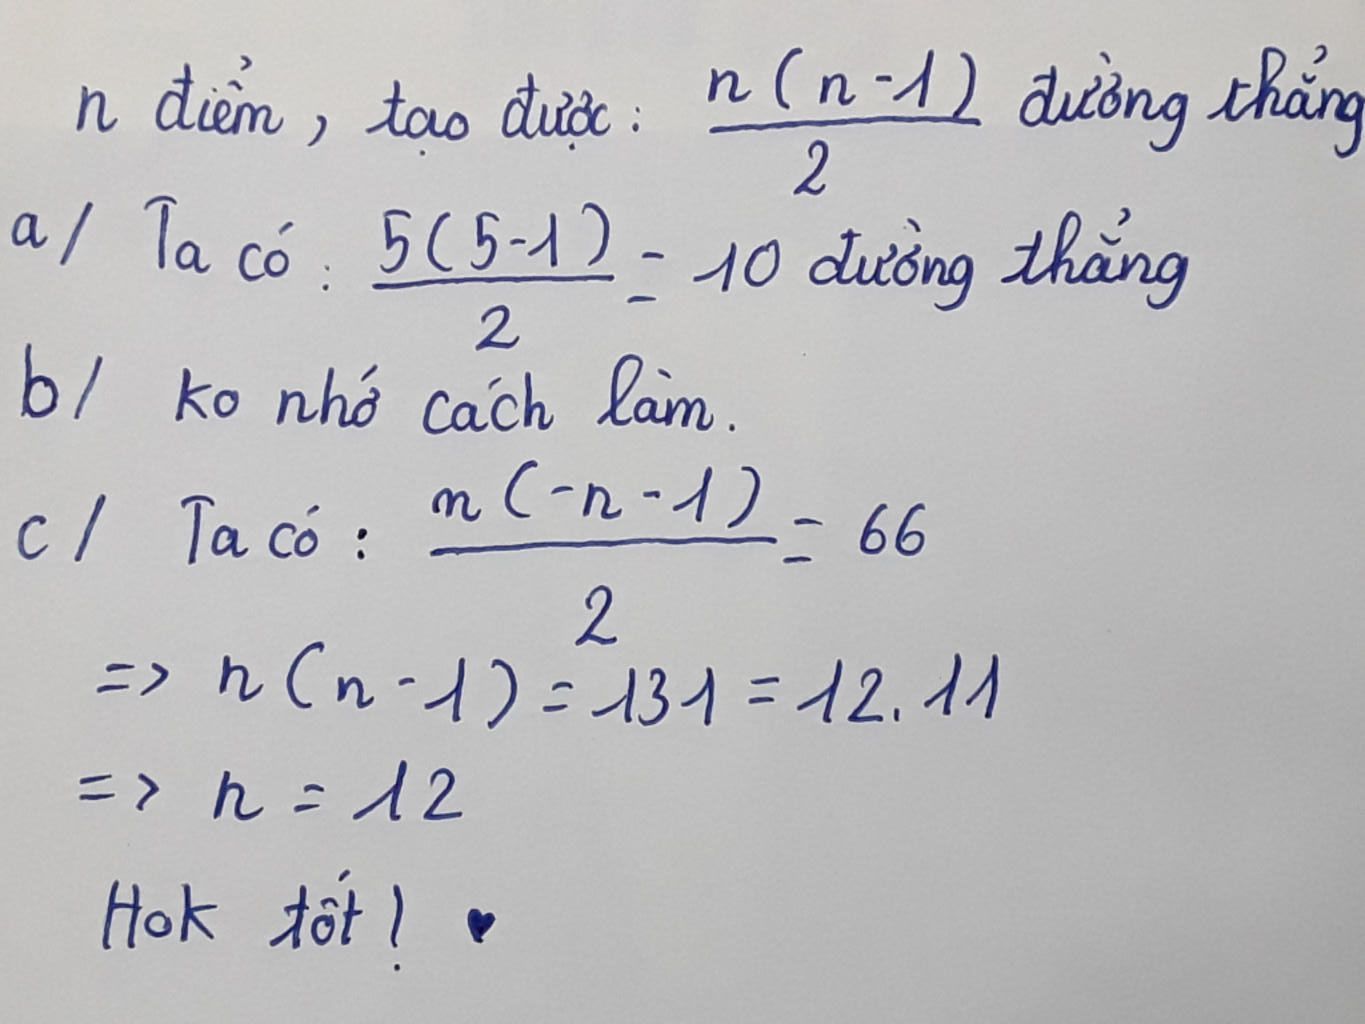 n điểm, tạo được: n(n-1)/2 đường thẳng
a/ Ta có: 5(5-1)/2 = 10 đường thẳng
b/ ko nhớ cách làm.
c/ Ta có: n(-n-1)/2 = 66
=> n(n-1) = 131 = 12.11
=> n = 12
Hok tốt! ♥